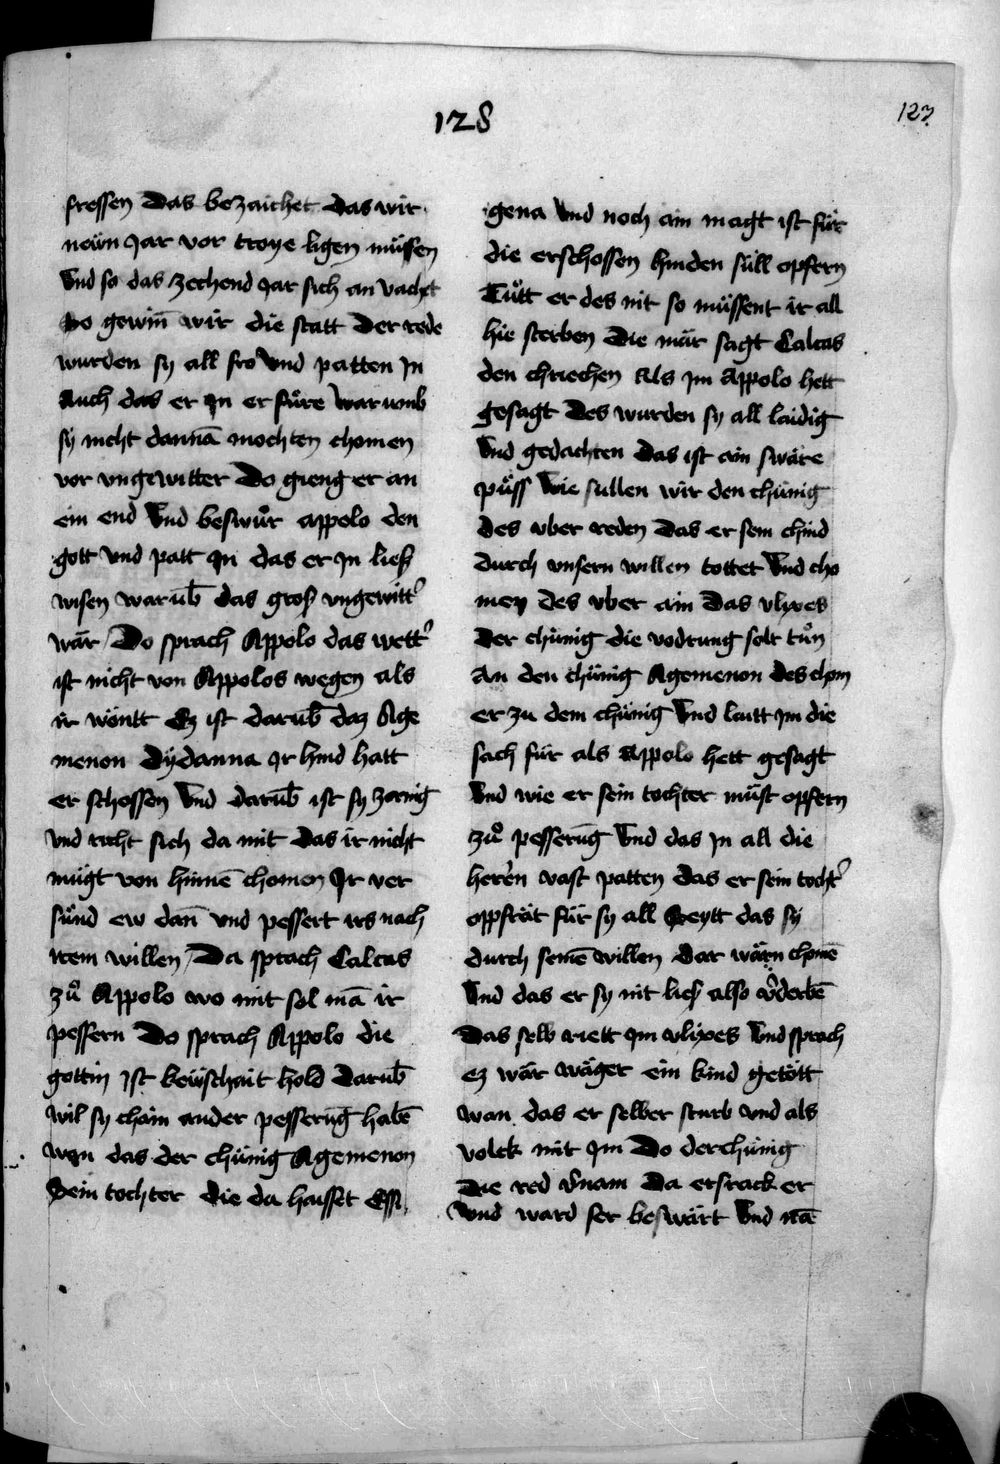 128
123
fressen Das bezaichet das wir
neün Jar vor troye ligen müssen
Vnd so das zechend Jar sich an vachet
So gewin̄ wir die statt Der rede
wurden sy all fro Vnd patten Jn
Auch das er Jn er füre war vmb
sÿ nicht dannā mochten chomen
vor vngewitter Do gieng er an
ein end Vnd beswůr appolo den
gott Vnd patt Jn das er Jn ließ
wisen warūb das groß vngewitt'
wär / Do sprach Appolo das wett'
ist nicht von Appolos wegen als
ir wöntt Ez ist darūb daz Age
menon Dÿdanna Jr hind hatt
er schossen Vnd darūb ist sy zornig
Vnd richt sich da mit das ir nicht
mügt von hinnē chomen Jr ver
sünd ew dan̄ vnd pessert irs nach
irem willen / Da sprach Calcas
zů Appolo wo mit sol mā ir
pessern Do sprach Appolo die
gottin Jst keüschait hold darūb
wil sy chain ander pesserūg habē
wan das der chünig Agemenon
Sein tochter die da haisset Effi
gena Vnd noch ain magt ist für
die erschossen hinden süll opfern
Tůtt er des nit so müssent ir all
hie sterben Die mär sagt Calcas
den chriechen Als Jm Appolo hett
gesagt Des wurden sy all laidig
Vnd gedachten das ist ain swäre
püss Wie sullen wir den chünig
des vber reden das er sein chind
durch vnsern willen tottet Vnd cho
men des vber ain Das vlyxes
Der chünig die vodrung solt tůn
An den chünig Agemenon Des chom
er zu dem chünig Vnd leutt Jm die
sach für als Appolo hett gesagt
Vnd wie er sein tochter müst opfern
zů pesserūg Vnd das Jn all die
heren vast patten das er sein tocht'
oppfrät für sy all Seytt das sy
durch seinē willen dar wärn chomē
Vnd das er sy nit ließ also v'derbē
Das selb riett Jm vlixes Vnd sprach
ez wär wäger ein kind getött
wan das er selber sturb vnd als
volck mit Jm Do der chünig
Die red v'nam Da erschrack er
Vnd ward ser beswärt Vnd nā